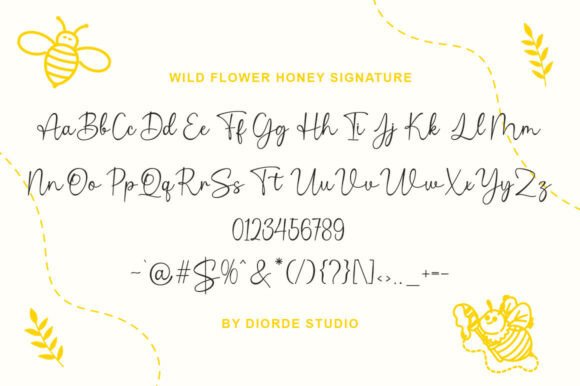 WILD FLOWER HONEY SIGNATURE
Aa Bb Cc Dd Ee Ff Gg Hh Ii Jj Kk Ll Mm
Nn Oo Pp Qq Rr Ss Tt Uu Vv Ww Xx Yy Zz
0123456789
~`@#$%^&*(/){?}[\]<>.,_+=-
BY DIORDE STUDIO